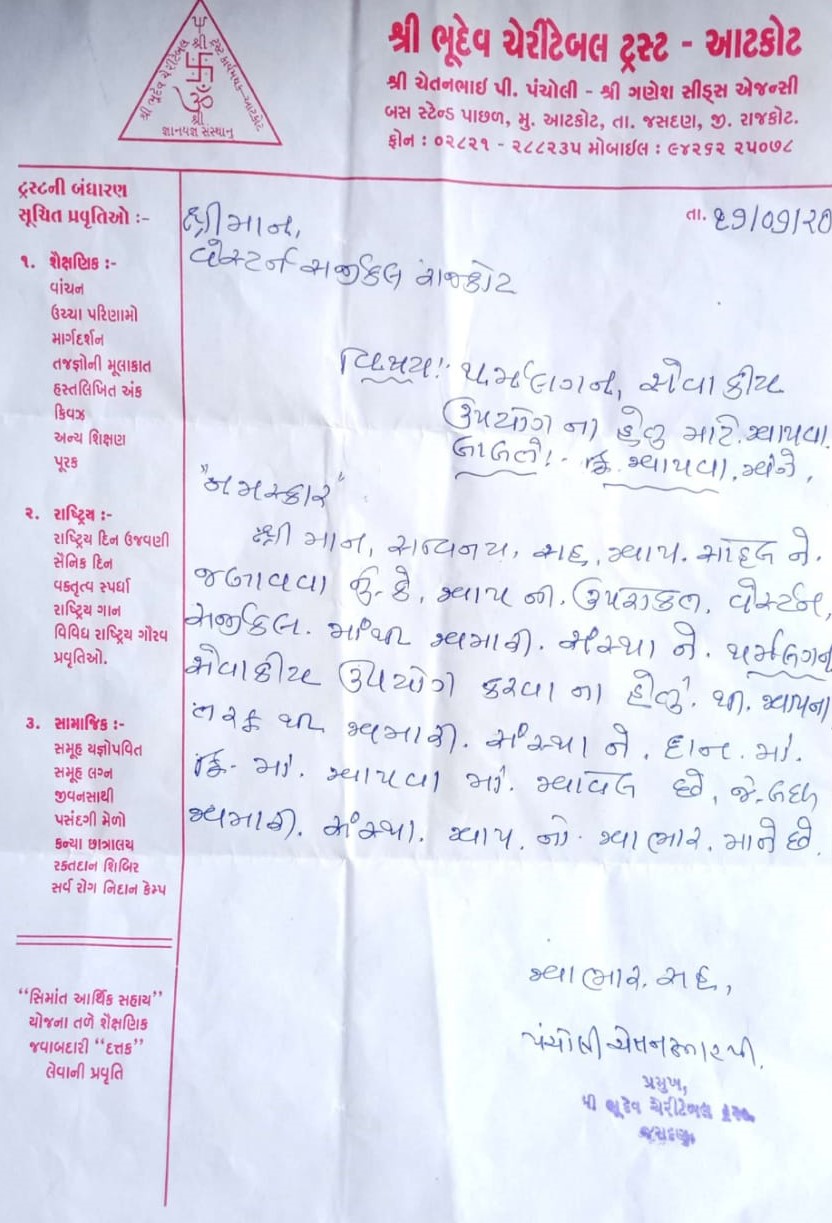 શ્રી ભૂદેવ ચેરીટેબલ ટ્રસ્ટ - આટકોટ
શ્રી ચેતનભાઈ પી. પંચોલી - શ્રી ગણેશ સીડ્સ એજન્સી
બસ સ્ટેન્ડ પાછળ, મુ. આટકોટ, તા. જસદણ, જી. રાજકોટ.
ફોન : ૦૨૮૨૧ - ૨૮૮૨૩૫ મોબાઈલ : ૯૪૨૬૨ ૨૫૦૭૮
શ્રી ભૂદેવ ચેરીટેબલ શ્રી ટ્રસ્ટ
આટકોટ
ૐ
શ્રી
જ્ઞાનયજ્ઞ સંસ્થાનુ
ટ્રસ્ટની બંધારણ
સૂચિત પ્રવૃતિઓ :-
૧. શૈક્ષણિક :-
વાંચન
ઉચ્ચા પરિણામો
માર્ગદર્શન
તજજ્ઞોની મૂલાકાત
હસ્તલિખિત અંક
ક્વિઝ
અન્ય શિક્ષણ
પૂરક
૨. રાષ્ટ્રિય :-
રાષ્ટ્રિય દિન ઉજવણી
સૈનિક દિન
વકતૃત્વ સ્પર્ધા
રાષ્ટ્રિય ગાન
વિવિધ રાષ્ટ્રિય ગૌરવ
પ્રવૃતિઓ.
૩. સામાજિક :-
સમૂહ યજ્ઞોપવિત
સમૂહ લગ્ન
જીવનસાથી
પસંદગી મેળો
કન્યા છાત્રાલય
રક્તદાન શિબિર
સર્વ રોગ નિદાન કેમ્પ
"સિમાંત આર્થિક સહાય"
યોજના તળે શૈક્ષણિક
જવાબદારી "દત્તક"
લેવાની પ્રવૃતિ
તા.
શ્રીમાન,
વેસ્ટર્ન સર્જીકલ રાજકોટ
વિષય:- થર્મલગન, સેવાકીય
ઉપયોગ ના હેતુ માટે આપવા
બાબતે:- ફ્રિ. આપવા, અંગે,
"નમસ્કાર"
શ્રી માન, સહ, આપ. સાહેબ ને.
જણાવવા નું કે, આપ ની. ઉપરોકત, વેસ્ટર્ન,
સર્જીકલ. માંથી અમારી. સંસ્થા ને. થર્મલગન
સેવાકીય ઉપયોગ કરવા ના હેતુ. થી. આપના
તરફ થી અમારી. સંસ્થા ને. દાન. માં.
ફ્રિ. માં. આપવા માં. આવેલ છે, જે.બદલ
અમારી. સંસ્થા. આપ. નો. આભાર. માને છે.
આભાર. સહ,
પ્રમુખ,
શ્રી ભૂદેવ ચેરીટેબલ ટ્રસ્ટ
જસદણ